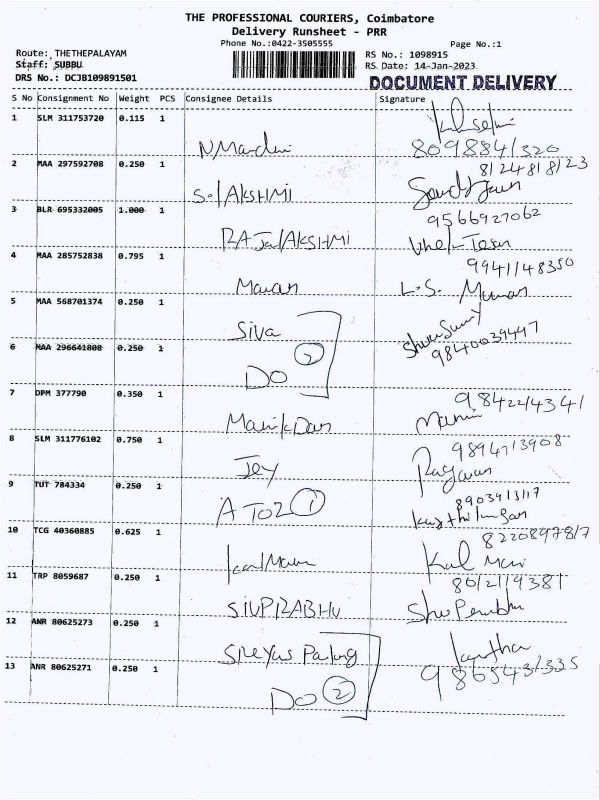 THE PROFESSIONAL COURIERS, Coimbatore
Delivery Runsheet - PRR
Phone No.:0422-3505555 Page No.:1
Route: THETHEPALAYAM RS No.: 1098915
Staff: SUBBU RS Date: 14-Jan-2023
DRS No.: DCJB109891501 DOCUMENT DELIVERY
S No Consignment No Weight PCS Consignee Details Signature
1 SLM 311753720 0.115 1
2 MAA 297592708 0.250 1 8124818123
S.lAKSHMI
3 BLR 695332005 1.000 1 9566927062
RAJalAKSHMI
4 MAA 285752838 0.795 1 9941148350
Maran L.S.
5 MAA 568701374 0.250 1
Siva 9840039447
6 MAA 296641808 0.250 1 2
DO
7 DPM 377790 0.350 1 9842214341
8 SLM 311776102 0.750 1 9894713908
Jey
9 TUT 784334 0.250 1 8903913117
A TO Z 1
10 TCG 40360885 0.625 1 8220897817
11 TRP 8059687 0.250 1 8012119381
SIVPRABHU
12 ANR 80625273 0.250 1
13 ANR 80625271 0.250 1 9865431335
DO 2